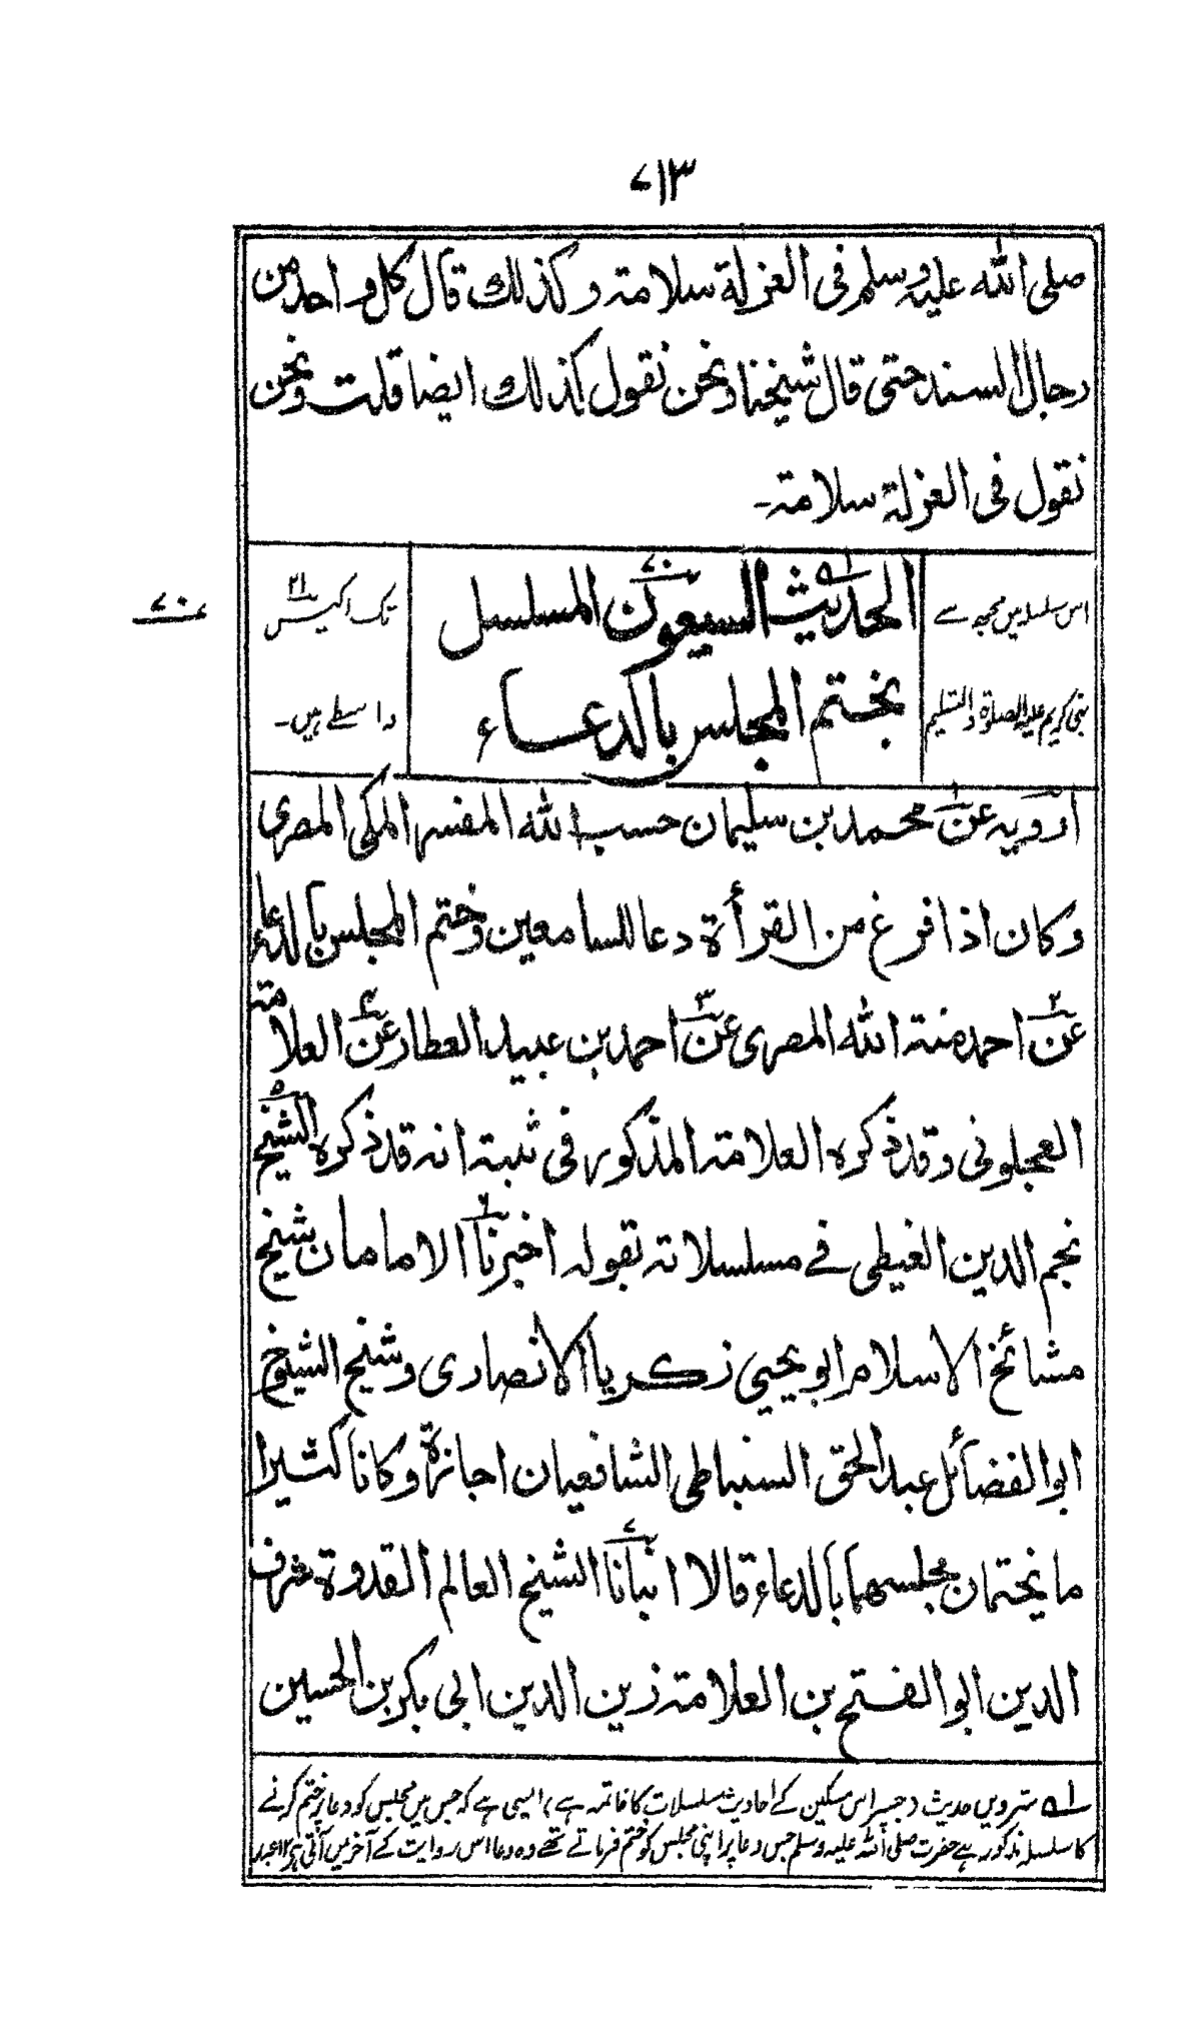 ۷۱۳
صلى الله عليه وسلم فى العزلة سلامة وكذلك قال كل واحد من
رجال السند حتى قال شيخنا ونحن نقول كذلك ايضا قلت ونحن
نقول فى العزلة سلامة۔
اس سلسلہ میں مجھ سے
نبی کریم علیہ الصلوٰۃ والتسلیم
الحديث السبعون المسلسل
۷۰
بختم المجلس بالدعاء
تک اکیس ۲۱
واسطے ہیں۔
۷۰
ارويه عن محمد بن سليمان حسب الله المفسر المكى المصرى
وكان اذا فرغ من القرأة دعا للسامعين وختم المجلس بالدعاء
عن احمد منة الله المصرى عن احمد بن عبيد العطار عن العلامة
العجلونى وقد ذكره العلامة المذكور فى ثبته انه قد ذكره الشيخ
نجم الدين الغيطى فے مسلسلاته بقوله اخبرنا الامامان شيخ
مشائخ الاسلام ابو يحيى زكريا الانصارى وشيخ الشيوخ
ابو الفضائل عبد الحق السنباطى الشافعيان اجازة وكانا كثيرا
ما يختمان مجلسهما بالدعاء قالا انبأنا الشيخ العالم القدوة شرف
الدين ابو الفتح بن العلامة زين الدين ابى بكر بن الحسين
لہ سترویں حدیث (جسپر اس مسکین کے احادیث مسلسلات کا خاتمہ ہے) ایسی ہے کہ جس میں مجلس کو دعا پر ختم کرنے
کا سلسلہ مذکور ہے حضرت صلی اللہ علیہ وسلم جس دعا پر اپنی مجلس کو ختم فرماتے تھے وہ دعا اس روایت کے آخر میں آتی ہے ۱۲